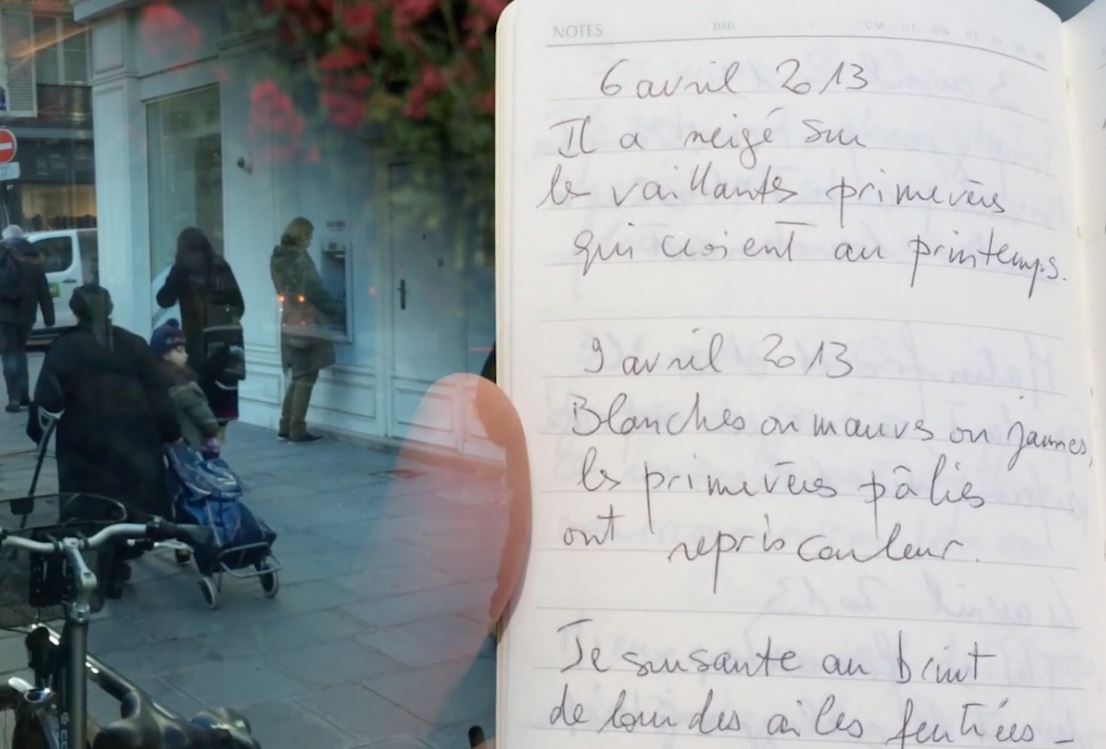 NOTES
6 avril 2013
Il a neigé sur
les vaillantes primevères
qui croient au printemps.
9 avril 2013
Blanches ou mauves ou jaunes,
les primevères pâlies
ont repris couleur.
Je sursaute au bruit
de lourdes ailes feutrées –